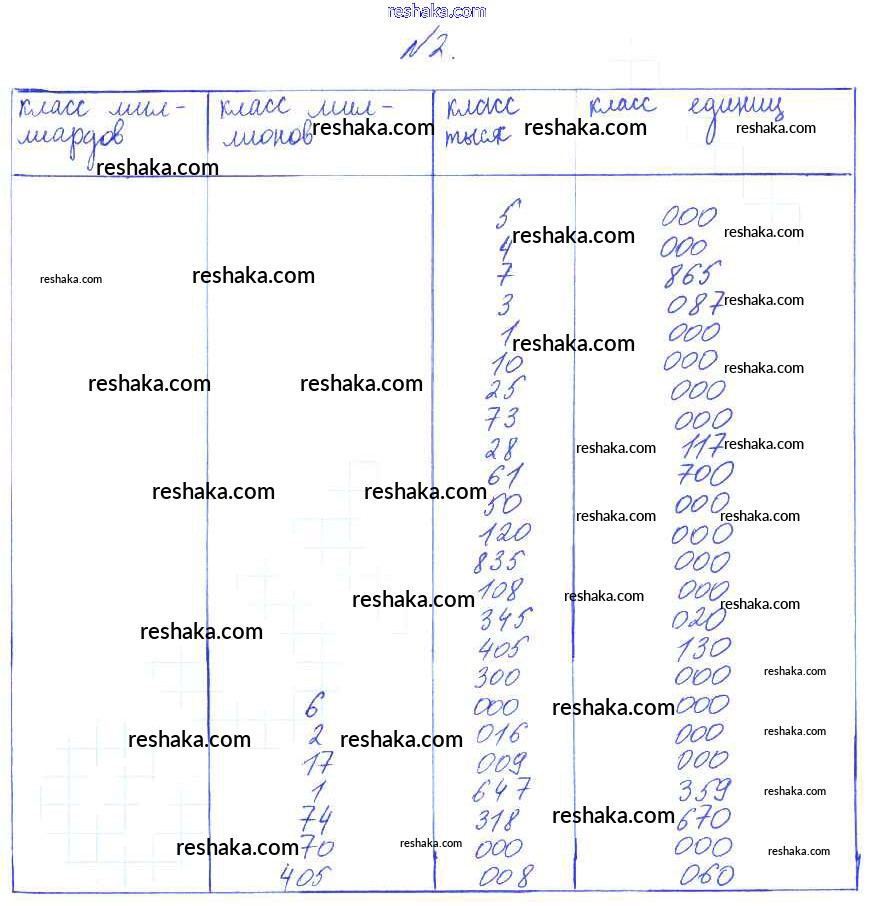 reshaka.com
№2.
класс мил- класс мил- класс класс единиц
лиардов лионов тысяч
reshaka.com reshaka.com reshaka.com
reshaka.com
5 000
reshaka.com reshaka.com
4 000
reshaka.com reshaka.com
7 865
3 087 reshaka.com
1 000
reshaka.com
10 000
reshaka.com
reshaka.com reshaka.com
25 000
73 000
28 reshaka.com 117 reshaka.com
61 700
reshaka.com reshaka.com
50 000
reshaka.com reshaka.com
120 000
835 000
108 000
reshaka.com reshaka.com
reshaka.com
345 020
reshaka.com
405 130
300 000
reshaka.com
6 000 reshaka.com 000
2 016 000 reshaka.com
reshaka.com reshaka.com
17 009 000
1 647 359 reshaka.com
74 318 reshaka.com 670
reshaka.com 70 reshaka.com 000 000 reshaka.com
405 008 060